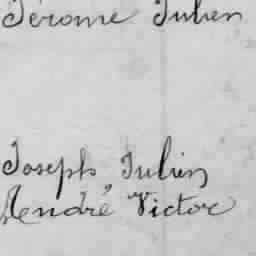 Jérome Julien
Joseph, Julien
André Victor